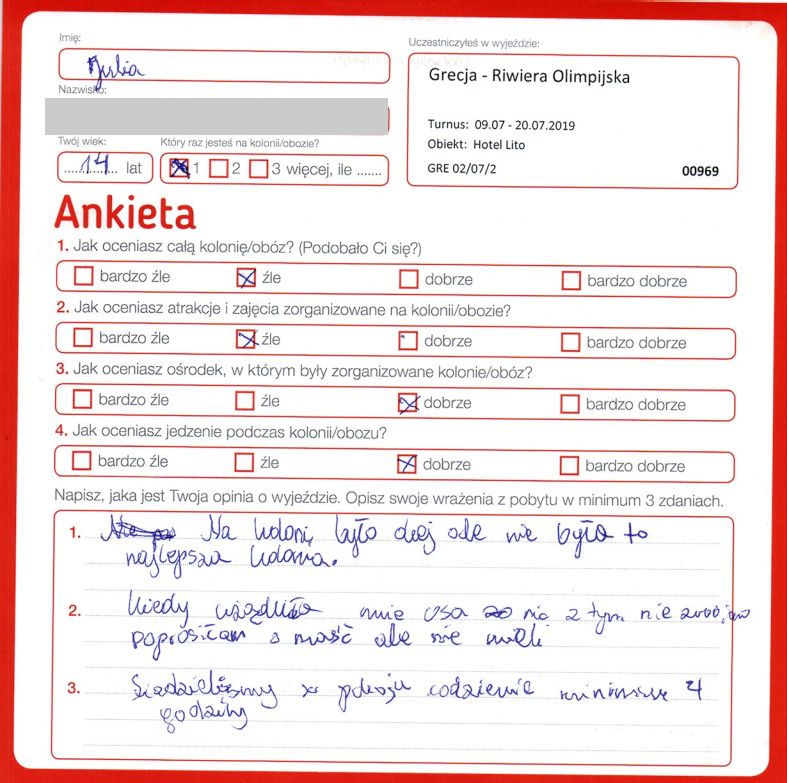 Imię:
Julia
Uczestniczyłeś w wyjeździe:
Grecja - Riwiera Olimpijska
Nazwisko:
Turnus: 09.07 - 20.07.2019
Obiekt: Hotel Lito
GRE 02/07/2 00969
Twój wiek: Który raz jesteś na kolonii/obozie?
14 lat 1 2 3 więcej, ile .......
Ankieta
1. Jak oceniasz całą kolonię/obóz? (Podobało Ci się?)
bardzo źle źle dobrze bardzo dobrze
2. Jak oceniasz atrakcje i zajęcia zorganizowane na kolonii/obozie?
bardzo źle źle dobrze bardzo dobrze
3. Jak oceniasz ośrodek, w którym były zorganizowane kolonie/obóz?
bardzo źle źle dobrze bardzo dobrze
4. Jak oceniasz jedzenie podczas kolonii/obozu?
bardzo źle źle dobrze bardzo dobrze
Napisz, jaka jest Twoja opinia o wyjeździe. Opisz swoje wrażenia z pobytu w minimum 3 zdaniach.
1. Na koloni było ale nie była to
najlepsza kolonia.
2. Kiedy mnie osa nic z tym nie
poprosiłam o maść ale nie mieli
3. Siedzieliśmy w pokoju codziennie minimum 4
godziny